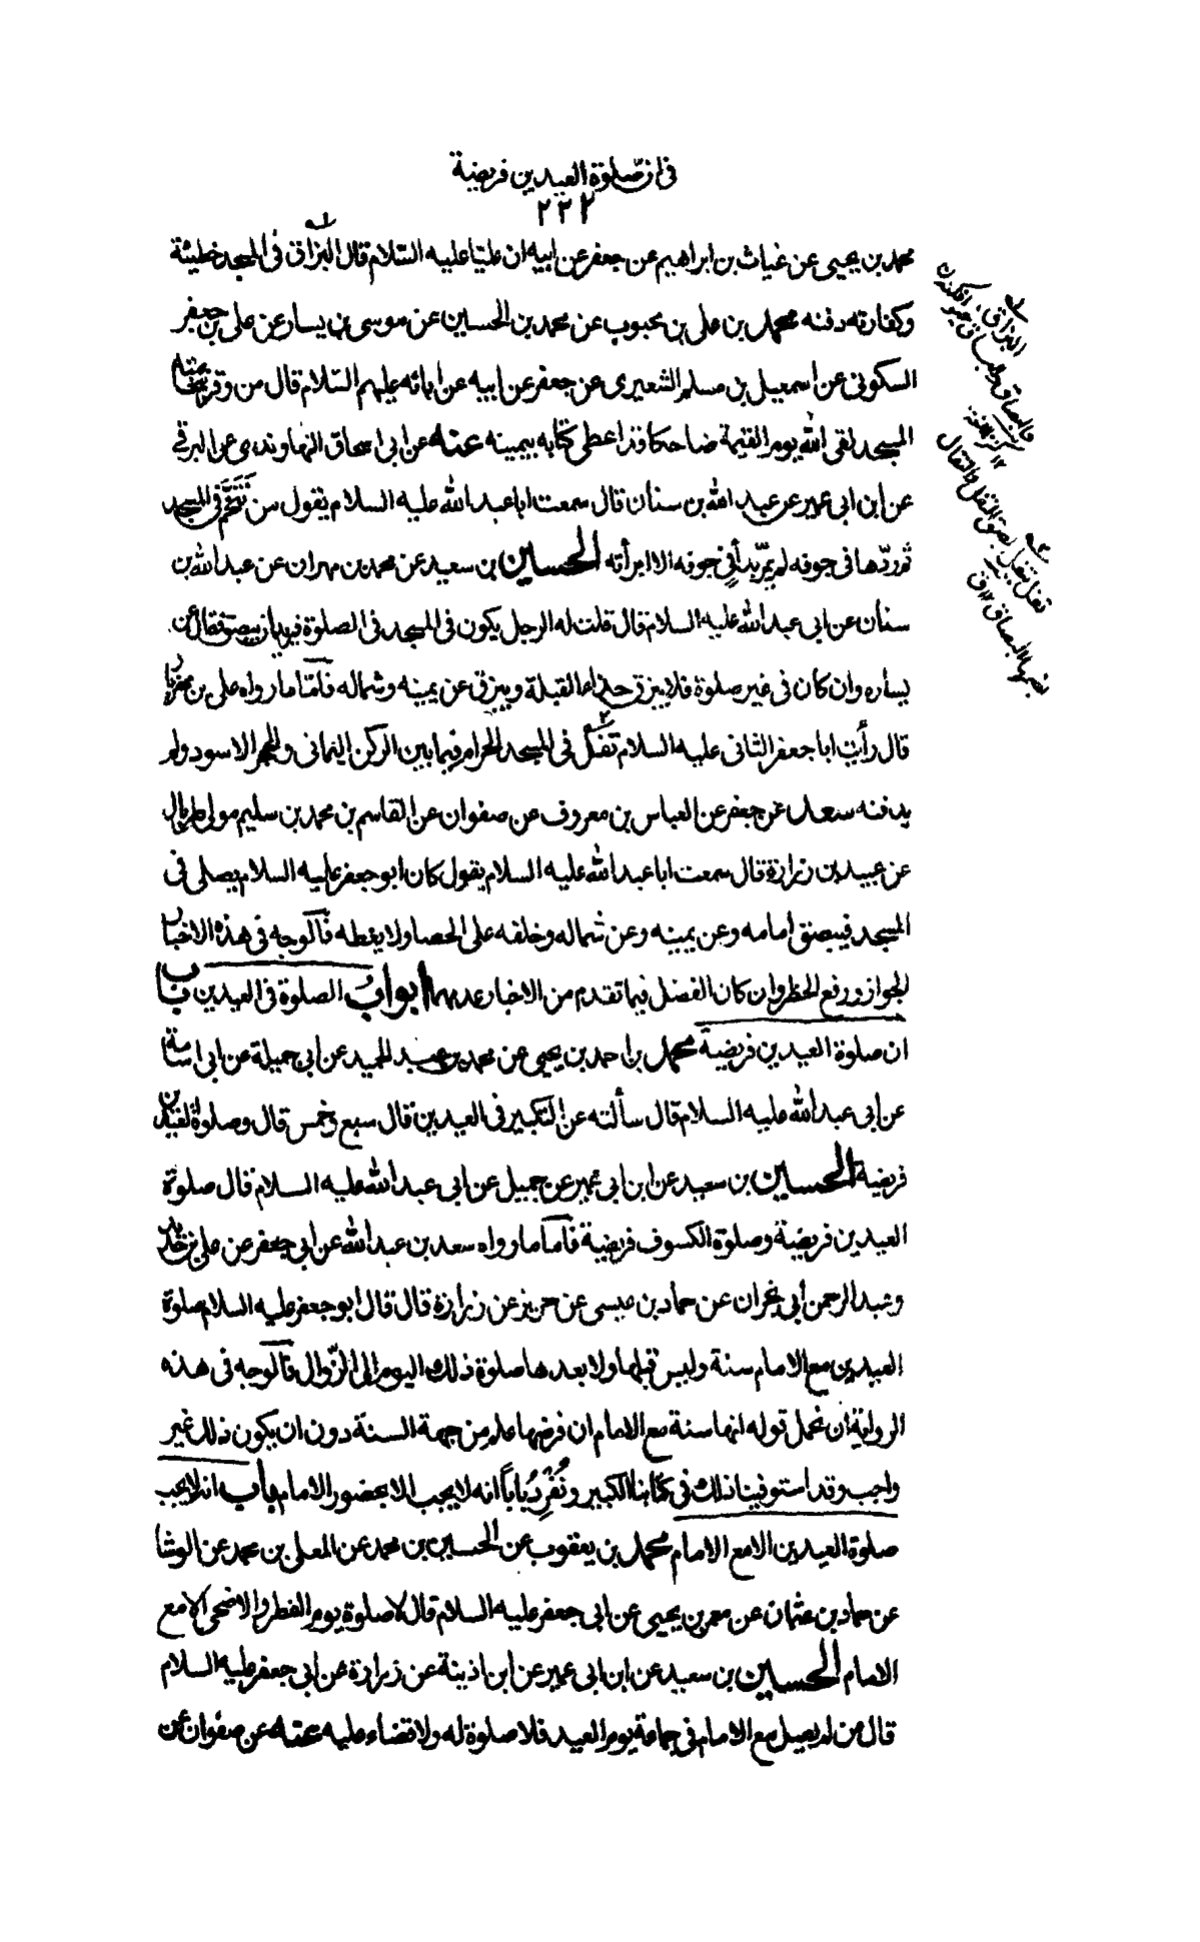 في ان صلوة العيدين فريضة
٢٢٢
محمد بن يحيى عن غياث بن ابراهيم عن جعفر عن ابيه ان عليّا عليه السّلام قال البزاق فى المسجد خطيئة
وكفارته دفنه محمد بن على بن محبوب عن محمد بن الحسين عن موسى بن يسار عن على بن جعفر
السكونى عن اسمعيل بن مسلم الشعيرى عن جعفر عن ابيه عن ابائه عليهم السّلام قال من وقر بنخامته
المسجد لقى الله يوم القيمة ضاحكا قد اعطى كتابه بيمينه عنه عن ابى اسحاق النهاوندى عن البرقى
عن ابن ابى عمير عن عبد الله بن سنان قال سمعت ابا عبد الله عليه السلام يقول من تنخّم فى المسجد
ثم ردّها فى جوفه لم يمرّ بداءٍ فى جوفه الا ابرأته الحسين بن سعيد عن محمد بن مهران عن عبد الله بن
سنان عن ابى عبد الله عليه السلام قال قلت له الرجل يكون فى المسجد فى الصلوة فيريد ان يبصق فقال عن
يساره وان كان فى غير صلوة فلا يبزق حذاء القبلة ويبزق عن يمينه وشماله فامّا ما رواه على بن مهزيار
قال رأيت ابا جعفر الثانى عليه السلام تفل فى المسجد الحرام فيما بين الركن اليمانى والحجر الاسود ولم
يدفنه سعد عن جعفر عن العباس بن معروف عن صفوان عن القاسم بن محمد بن سليم مولى طربال
عن عبيد بن زرارة قال سمعت ابا عبد الله عليه السلام يقول كان ابو جعفر عليه السلام يصلى فى
المسجد فيبصق امامه وعن يمينه وعن شماله وخلفه على الحصا ولا يغطه فالوجه فى هذه الاخبار
الجواز ورفع الحظر وان كان الفضل فيما تقدم من الاخبار عدمها ابواب الصلوة فى العيدين باب
ان صلوة العيدين فريضة محمد بن احمد بن يحيى عن محمد بن عبد الحميد عن ابى جميلة عن ابى اسامة
عن ابى عبد الله عليه السلام قال سألته عن التكبير فى العيدين قال سبع وخمس قال وصلوة العيدين
فريضة الحسين بن سعيد عن ابن ابى عمير عن جميل عن ابى عبد الله عليه السلام قال صلوة
العيدين فريضة وصلوة الكسوف فريضة فامّا ما رواه سعد بن عبد الله عن ابى جعفر عن على بن حديد
وعبد الرحمن أبى نجران عن حماد بن عيسى عن حريز عن زرارة قال قال ابو جعفر عليه السلام صلوة
العيدين مع الامام سنة وليس قبلها ولا بعدها صلوة ذلك اليوم الى الزّوال فالوجه فى هذه
الرواية ان نحمل قوله انها سنة مع الامام ان فرضها علم من جهة السنة دون ان يكون ذلك غير
واجب وقد استوفينا ذلك فى كتابنا الكبير ونُفْرِد باباً انه لا يجب الا بحضور الامام باب انه لا يجب
صلوة العيدين الا مع الامام محمد بن يعقوب عن الحسين بن محمد عن المعلى بن محمد عن الوشا
عن حماد بن عثمان عن معمر بن يحيى عن ابى جعفر عليه السلام قال لا صلوة يوم الفطر والاضحى الا مع
الامام الحسين بن سعيد عن ابن ابى عمير عن ابن اذينة عن زرارة عن ابى جعفر عليه السلام
قال من لم يصل مع الامام فى جماعة يوم العيد فلا صلوة له ولا قضاء عليه عنه عن صفوان عن